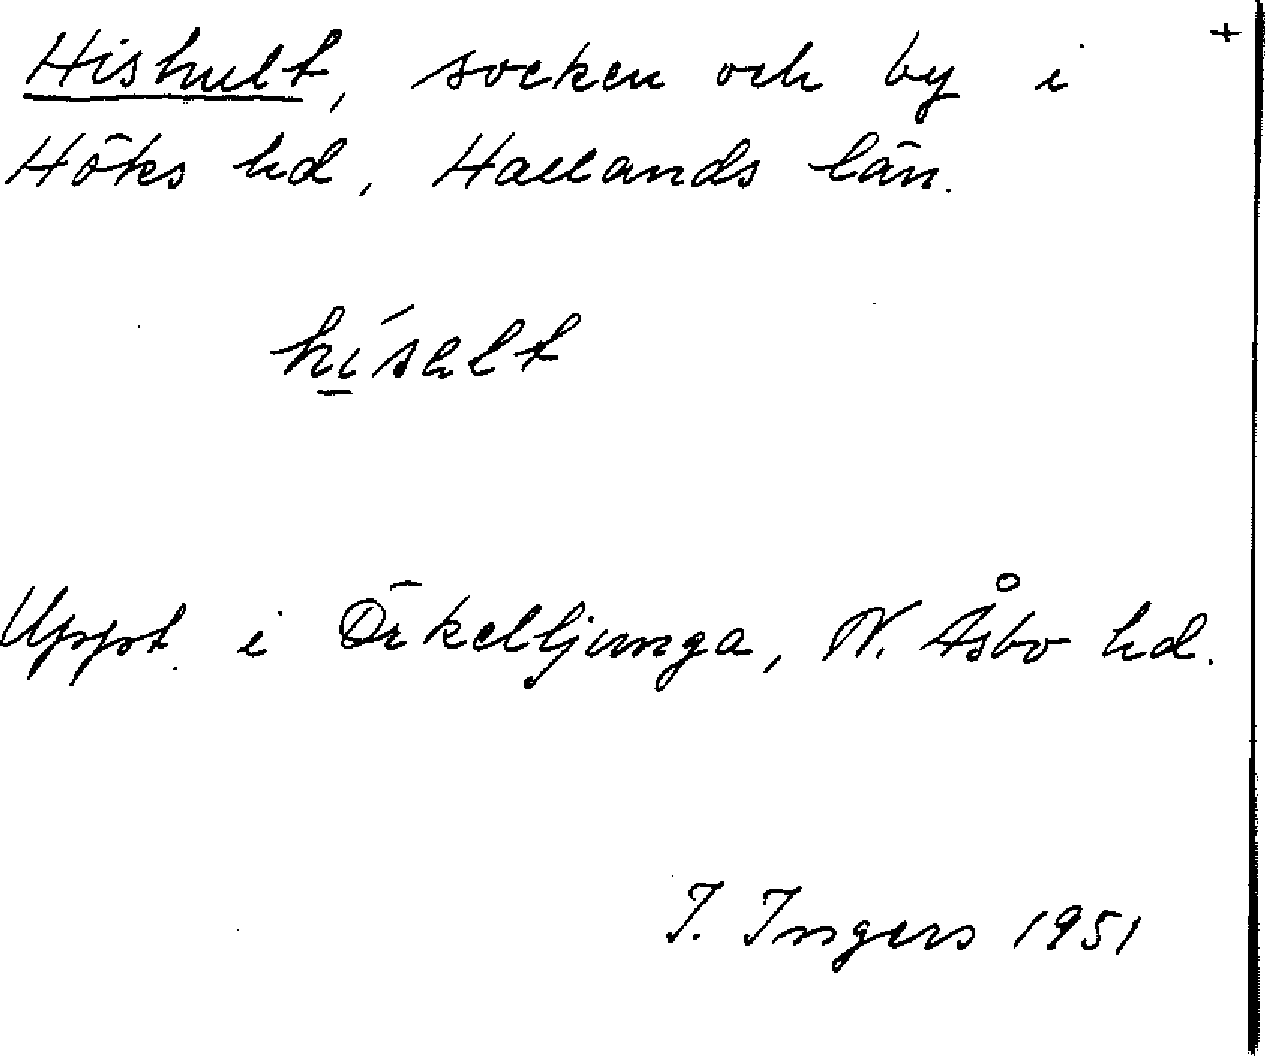 Hishult, socken och by i +
Höks hd, Hallands län.
hi̲´salt
Uppt. i Örkelljunga, N. Åsbo hd.
I. Ingers 1951